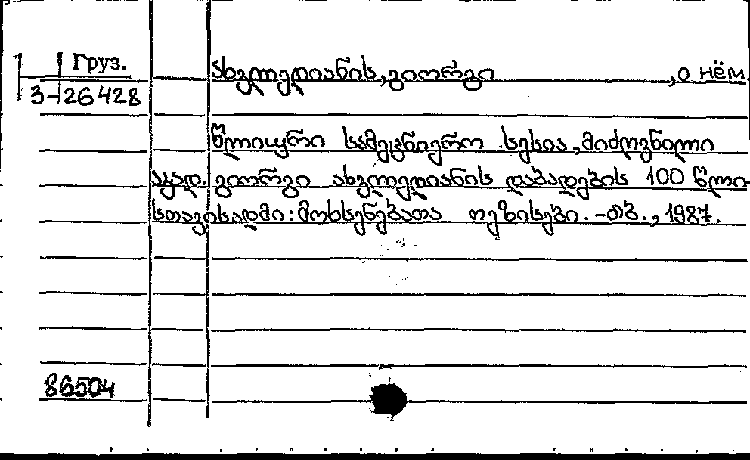 Груз.
ახვლედიანის, გიორგი , о нём
3-26428
წლიური სამეცნიერო სესია, მიძღვნილი
აკად. გიორგი ახვლედიანის დაბადების 100 წლი-
სთავისადმი: მოხსენებათა თეზისები. -თბ., 1987.
86504